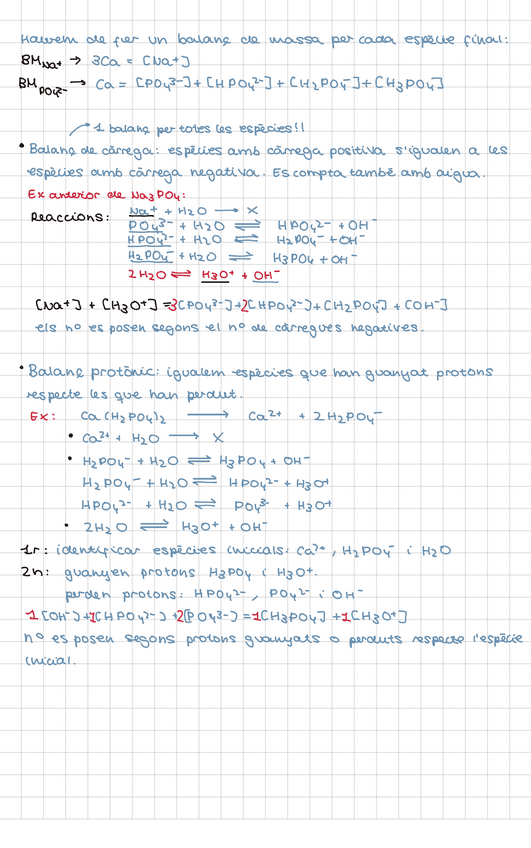 Haurem de fer un balanç de massa per cada espècie final:
BM Na+ → 3Ca = [Na+]
BM PO4³⁻ → Ca = [PO4³⁻] + [HPO4²⁻] + [H2PO4⁻] + [H3PO4]
1 balanç per totes les espècies!!
• Balanç de càrrega: espècies amb càrrega positiva s'igualen a les
espècies amb càrrega negativa. Es compta també amb aigua.
Ex anterior de Na3PO4:
Reaccions: Na⁺ + H2O → X
PO4³⁻ + H2O ⇌ HPO4²⁻ + OH⁻
HPO4²⁻ + H2O ⇌ H2PO4⁻ + OH⁻
H2PO4⁻ + H2O ⇌ H3PO4 + OH⁻
2H2O ⇌ H3O⁺ + OH⁻
[Na+] + [H3O+] = 3[PO4³⁻] + 2[HPO4²⁻] + [H2PO4⁻] + [OH⁻]
els nº es posen segons el nº de càrregues negatives.
• Balanç protònic: igualem espècies que han guanyat protons
respecte les que han perdut.
Ex: Ca(H2PO4)2 → Ca²⁺ + 2H2PO4⁻
• Ca²⁺ + H2O → X
• H2PO4⁻ + H2O ⇌ H3PO4 + OH⁻
H2PO4⁻ + H2O ⇌ HPO4²⁻ + H3O⁺
HPO4²⁻ + H2O ⇌ PO4³⁻ + H3O⁺
• 2H2O ⇌ H3O⁺ + OH⁻
1r: identificar espècies inicials: Ca²⁺, H2PO4⁻ i H2O
2n: guanyen protons H3PO4 i H3O⁺.
perden protons: HPO4²⁻, PO4²⁻ i OH⁻
1[OH⁻] + 1[HPO4²⁻] + 2[PO4³⁻] = 1[H3PO4] + 1[H3O⁺]
nº es posen segons protons guanyats o perduts respecte l'espècie
inicial.